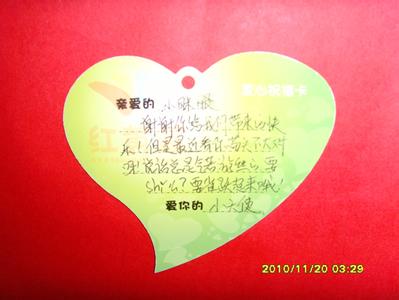 爱心祝福卡
亲爱的 小眯眼
谢谢你给我们带来的快
乐!但是最近看你苗头不大对
说话总是 要
shi么?要雀跃起来哦!
爱你的 小天使
红
2010/11/20 03:29